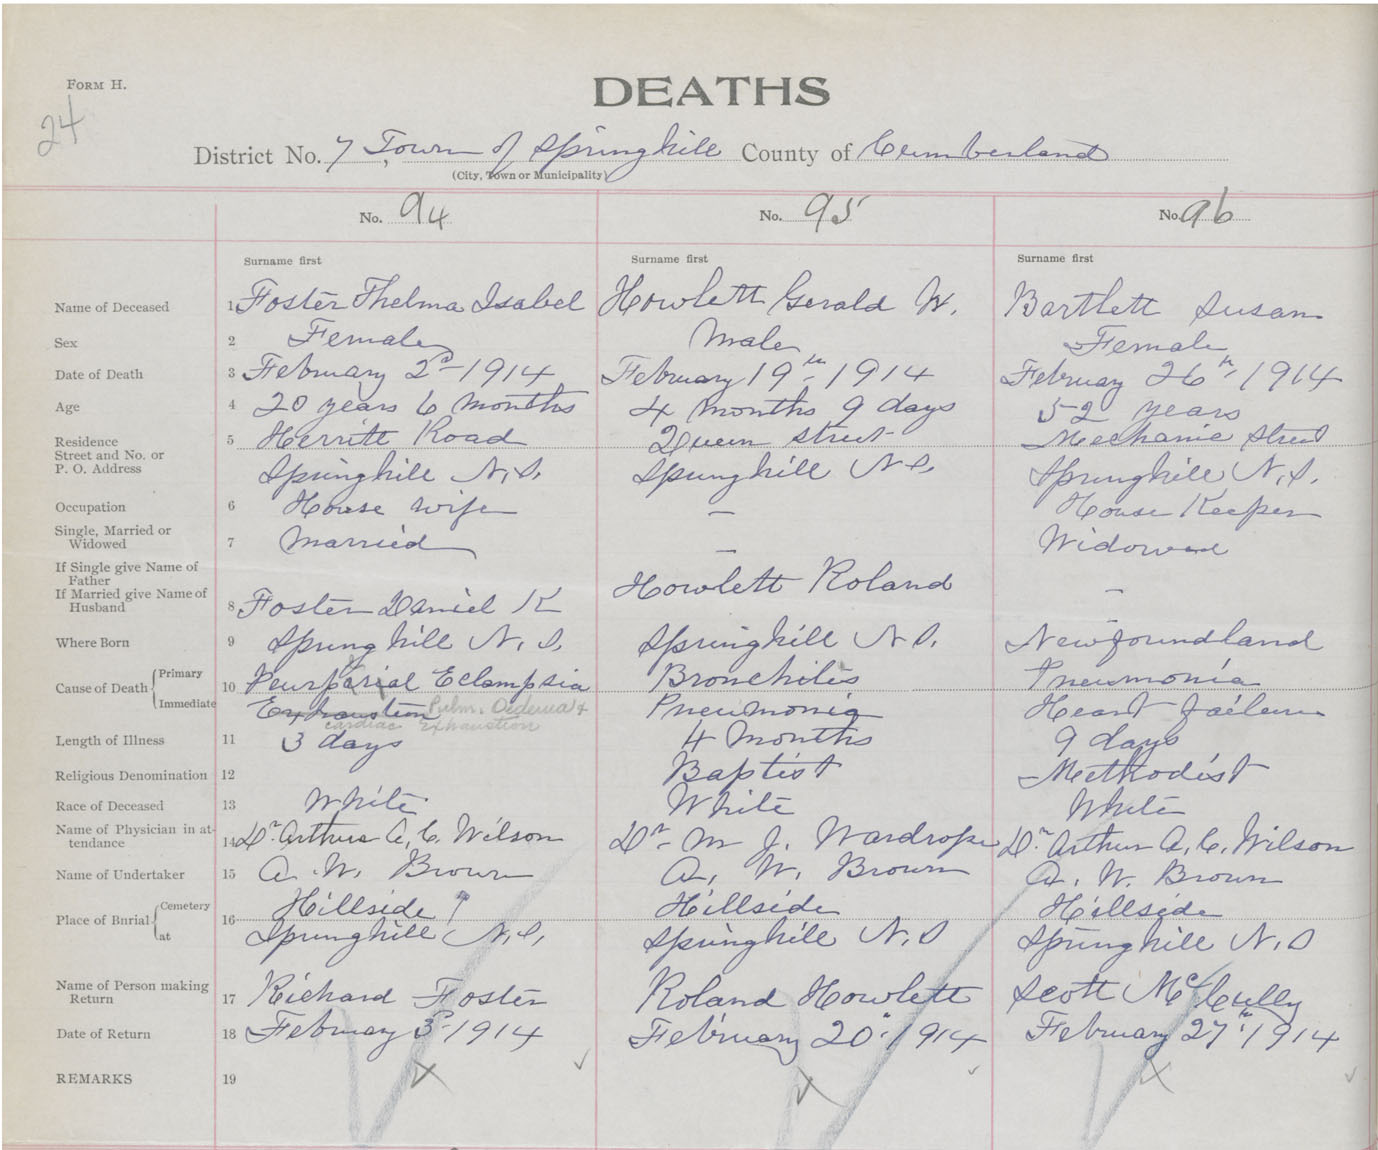 FORM H.
DEATHS
24
District No. 7 Town of Springhill County of Cumberland
(City, Town or Municipality)
No. 94 No. 95 No. 96
Surname first Surname first Surname first
Name of Deceased 1 Foster Thelma Isabel Howlett Gerald W. Bartlett Susan
Sex 2 Female Male Female
Date of Death 3 February 2d 1914 February 19th 1914 February 26th 1914
Age 4 20 years 6 months 4 months 9 days 52 years
Residence 5 Herritt Road Queen street Mechanic Street
Street and No. or
P. O. Address Springhill N.S. Springhill N.S. Springhill N.S.
Occupation 6 House wife – House Keeper
Single, Married or
Widowed 7 Married – Widowed
If Single give Name of
Father Howlett Roland –
If Married give Name of
Husband 8 Foster Daniel K
Where Born 9 Springhill N.S. Springhill N.S. Newfoundland
Cause of Death Primary 10 Peurparial Eclampsia Bronchitis Pneumonia
Immediate Exhaustion Pulm. Oedema + Pneumonia Heart Failure
cardiac exhaustion
Length of Illness 11 3 days 4 months 9 days
Religious Denomination 12 Baptist Methodist
Race of Deceased 13 White White White
Name of Physician in at-
tendance 14 Dr. Arthur A. C. Wilson Dr. M J. Wardrope Dr. Arthur A. C. Wilson
Name of Undertaker 15 A. W. Brown A. W. Brown A. W. Brown
Place of Burial Cemetery 16 Hillside Hillside Hillside
at Springhill N.S. Springhill N.S Springhill N.S
Name of Person making
Return 17 Richard Foster Roland Howlett Scott McCully
Date of Return 18 February 3d 1914 February 20th 1914 February 27th 1914
REMARKS 19